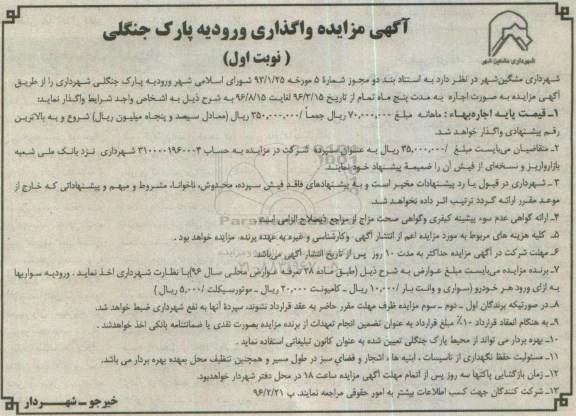 آگهی مزایده واگذاری ورودیه پارک جنگلی
( نوبت اول )
شهرداری مشگین شهر
شهرداری مشگین‌شهر در نظر دارد به استناد بند دو مجوز شمارۀ ۵ مورخه ۹۳/۱/۲۵ شورای اسلامی شهر ورودیه پارک جنگلی شهرداری را از طریق
آگهی مزایده به صورت اجاره به مدت پنج ماه تمام از تاریخ ۹۶/۳/۱۵ لغایت ۹۶/۸/۱۵ به شرح ذیل به اشخاص واجد شرایط واگذار نماید:
۱- قیمت پایه اجاره‌بهاء : ماهانه مبلغ ۷۰,۰۰۰,۰۰۰ ریال جمعاً ۳۵۰,۰۰۰,۰۰۰/ ریال (معادل سیصد و پنجاه میلیون ریال) شروع و به بالاترین
رقم پیشنهادی واگذار خواهد شد.
۲- متقاضیان می‌بایست مبلغ ۳۵,۰۰۰,۰۰۰/ ریال به عنوان سپرده شرکت در مزایده به حساب ۳۱۰۰۰۰۱۹۶۰۰۴ شهرداری نزد بانک ملی شعبه
بازارواریز و نسخه‌ای از فیش آن را ضمیمۀ پیشنهاد خود نمایند.
۳- شهرداری در قبول یا رد پیشنهادات مخیر است و به پیشنهادهای فاقد فیش سپرده، مخدوش، ناخوانا، مشروط و مبهم و پیشنهاداتی که خارج از
موعد مقرر ارائه گردد ترتیب اثر داده نخواهد شد.
۴- ارائه گواهی عدم سوء پیشینه کیفری وگواهی صحت مزاج از مراجع ذیصلاح الزامی است.
۵- کلیه هزینه های مربوط به مورد مزایده اعم از انتشار آگهی وکارشناسی و غیره به عهده برنده مزایده خواهد بود .
۶- مهلت شرکت در آگهی مزایده حداکثر به مدت ۱۰ روز پس از تاریخ انتشار آگهی می‌باشد.
۷- برنده مزایده می‌بایست مبلغ عوارض به شرح ذیل (طبق ماده ۳۸ تعرفه عوارض محلی سال ۹۶)با نظارت شهرداری اخذ نماید . ورودیه سواریها
به ازای ورود هر خودرو (سواری و وانت بار ۱۰,۰۰۰/ ریال - کامیونت ۲۰,۰۰۰ ریال - موتورسیکلت ۵,۰۰۰/ ریال )
۸- در صورتیکه برندگان اول - دوم - سوم مزایده ظرف مهلت مقرر حاضر به عقد قرارداد نشوند، سپردۀ آنها به نفع شهرداری ضبط خواهد شد.
۹- به هنگام انعقاد قرارداد ۱۰٪ مبلغ قرارداد به عنوان تضمین انجام تعهدات از برنده مزایده بصورت نقدی یا ضمانتنامه بانکی اخذ خواهدشد .
۱۰- بهره بردار می تواند از محیط پارک جنگلی تعیین شده به عنوان کانون تبلیغاتی استفاده نماید .
۱۱- مسئولیت حفظ نگهداری از تاسیسات ، ابنیه ها ، اشجار و فضای سبز در طول مسیر و همچنین تنظیف محل بعهده بهره بردار می باشد.
۱۲- زمان بازگشایی پاکتها سه روز پس از اتمام مهلت آگهی مزایده ساعت ۱۸ در محل دفتر شهردار خواهدبود.
۱۳- شرکت کنندگان جهت کسب اطلاعات بیشتر به امور حقوقی مراجعه نمایند. پ ۹۶/۲/۲۱
خیرجو - شهردار